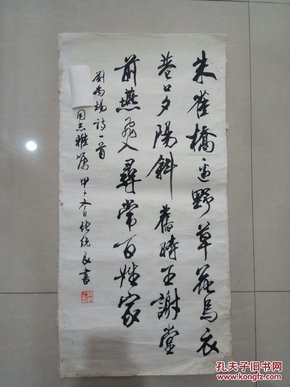 朱雀橋邊野草花烏衣
巷口夕陽斜舊時王謝堂
前燕飛入尋常百姓家
劉禹錫詩一首
同志雅屬 甲子冬日 書
孔夫子旧书网